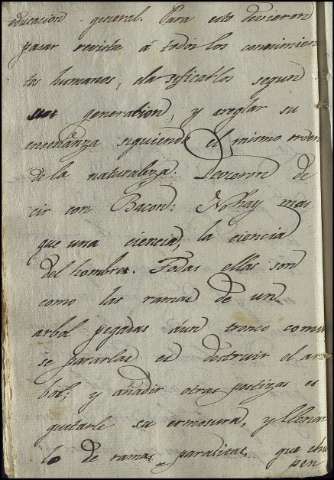 educacion general. Para esto desearon
pasar revista á todos los conocimien
tos humanos, clasificarlos segun
su generacion, y arreglar su
enseñanza siguiendo el mismo orden
de la naturaleza: de
cir con Bacon: No hay mas
que una ciencia, la ciencia
del hombre. Todas ellas son
como las ramas de un
arbol pegadas á un tronco comun
separarlas es destruir el ar
bol; y añadir otras postizas es
quitarle su hermosura, y llenar
lo de ramas parasitas, que chu
pen